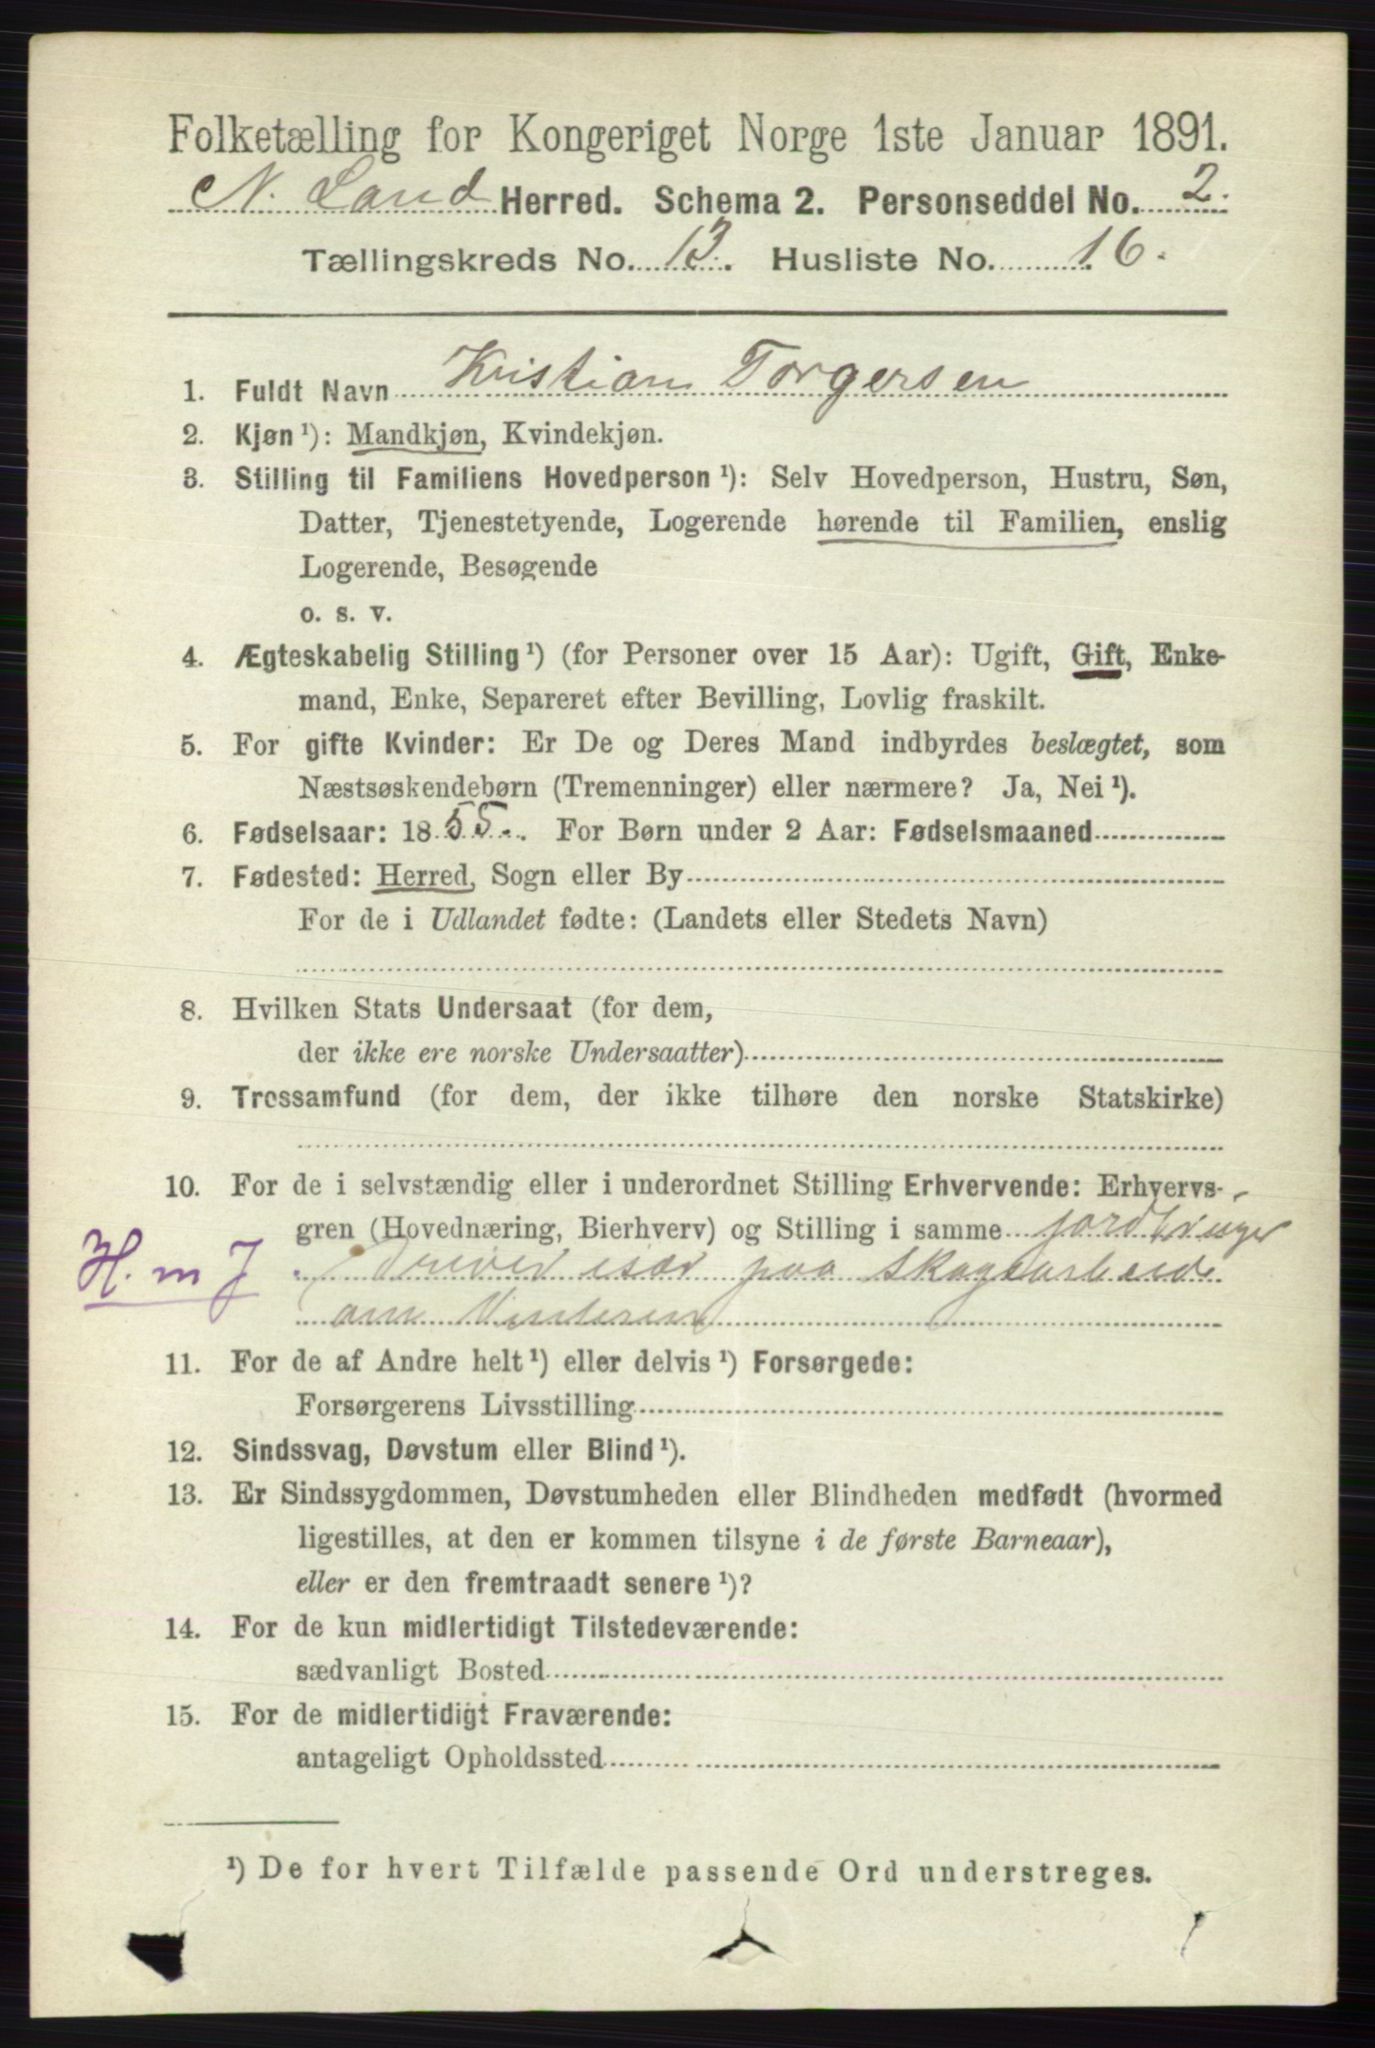 Folketælling for Kongeriget Norge 1ste Januar 1891.
N. Land Herred. Schema 2. Personseddel No. 2.
Tællingskreds No. 13. Husliste No. 16.
1. Fuldt Navn Kristian Torgersen
2. Kjøn¹): Mandkjøn, Kvindekjøn.
3. Stilling til Familiens Hovedperson¹): Selv Hovedperson, Hustru, Søn,
Datter, Tjenestetyende, Logerende hørende til Familien, enslig
Logerende, Besøgende
o. s. v.
4. Ægteskabelig Stilling¹) (for Personer over 15 Aar): Ugift, Gift, Enke-
mand, Enke, Separeret efter Bevilling, Lovlig fraskilt.
5. For gifte Kvinder: Er De og Deres Mand indbyrdes beslægtet, som
Næstsøskendebørn (Tremenninger) eller nærmere? Ja, Nei¹).
6. Fødselsaar: 1855. For Børn under 2 Aar: Fødselsmaaned
7. Fødested: Herred, Sogn eller By
For de i Udlandet fødte: (Landets eller Stedets Navn)
8. Hvilken Stats Undersaat (for dem,
der ikke ere norske Undersaatter)
9. Trossamfund (for dem, der ikke tilhøre den norske Statskirke)
10. For de i selvstændig eller i underordnet Stilling Erhvervende: Erhvervs-
gren (Hovednæring, Bierhverv) og Stilling i samme jordbruger
H. m J driver især paa Skogsarbeide
om Vinteren
11. For de af Andre helt¹) eller delvis¹) Forsørgede:
Forsørgerens Livsstilling
12. Sindssvag, Døvstum eller Blind¹).
13. Er Sindssygdommen, Døvstumheden eller Blindheden medfødt (hvormed
ligestilles, at den er kommen tilsyne i de første Barneaar),
eller er den fremtraadt senere¹)?
14. For de kun midlertidigt Tilstedeværende:
sædvanligt Bosted
15. For de midlertidigt Fraværende:
antageligt Opholdssted
¹) De for hvert Tilfælde passende Ord understreges.